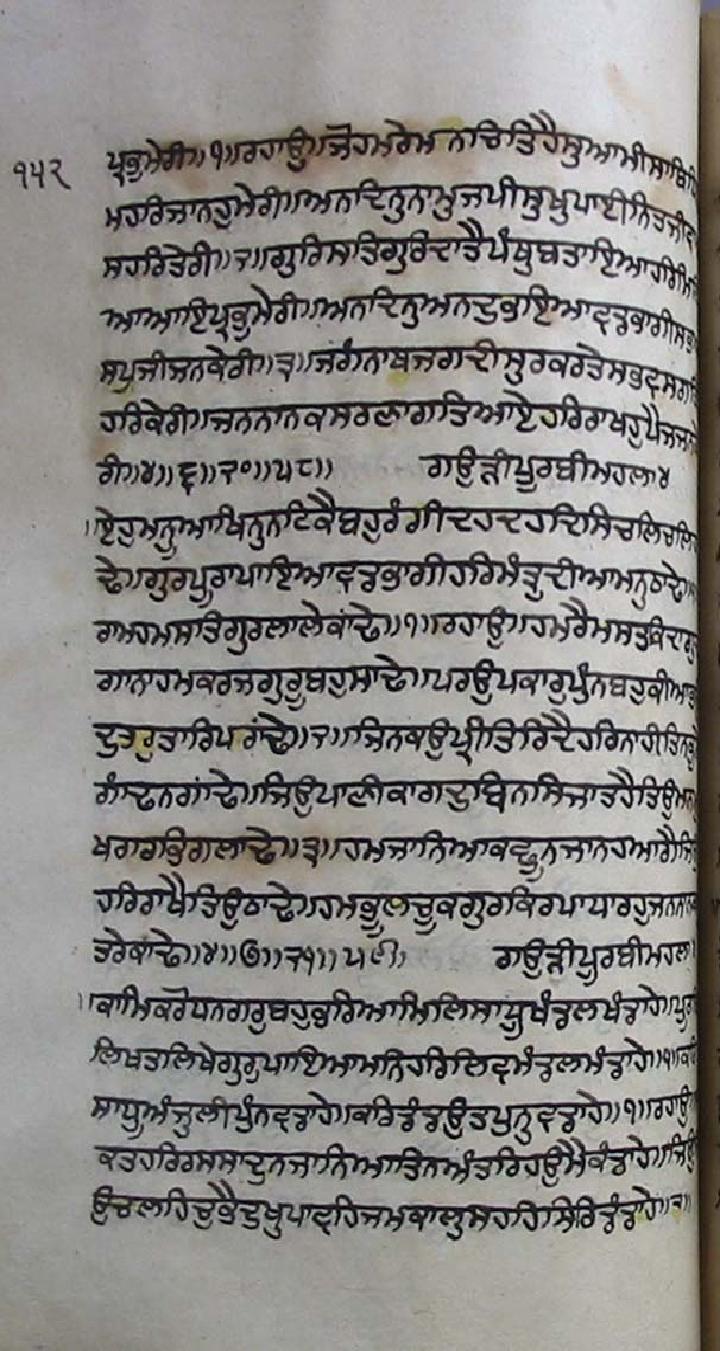 ੧੫੨
ਪ੍ਰਭੁਮੇਰੀ॥੧॥ਰਹਾਉ॥ਜੋਹਮਰੇਮਨਚਿਤਿਹੈਸੁਆਮੀਸਾਬਿਧਿ
ਮਹਰਿਜਾਨਹੁਮੇਰੀ॥ਅਨਦਿਨੁਨਾਮੁਜਪੀਸੁਖੁਪਾਈਨਿਤਜੀਵਾ
ਸਹਰਿਤੇਰੀ॥੨॥ਗੁਰਿਸਤਿਗੁਰਿਦਾਤੈਪੰਥੁਬਤਾਇਆਹਰਿਮਿ
ਆਆਇਪ੍ਰਭੁਮੇਰੀ॥ਅਨਦਿਨੁਅਨਦੁਭਇਆਵਡਭਾਗੀਸਭ
ਸਪੁਜੀਜਨਕੇਰੀ॥੩॥ਜਗੰਨਾਥਜਗਦੀਸੁਰਕਰਤੇਸਭਵਸਗਤਿ
ਹਰਿਕੇਰੀ॥ਜਨਨਾਨਕਸਰਣਾਗਤਿਆਏਹਰਿਰਾਖਹੁਪੈਜਜਨ
ਰੀ॥੪॥੬॥੨੦॥੫੮॥ ਗਉੜੀਪੂਰਬੀਮਹਲਾ੪
॥ਇਹੁਮਨੂਆਖਿਨੁਨਟਿਕੈਬਹੁਰੰਗੀਦਹਦਹਦਿਸਿਚਲਿਚਲਿ
ਢੇ॥ਗੁਰਪੂਰਾਪਾਇਆਵਡਭਾਗੀਹਰਿਮੰਤ੍ਰੁਦੀਆਮਨੁਠਾਢੇ॥
ਰਾਮਹਮਸਤਿਗੁਰਲਾਲੇਕਾਂਢੇ॥੧॥ਰਹਾਉ॥ਹਮਰੈਮਸਤਕਿਦਾਗੁ
ਗਾਨਾਹਮਕਰਜਗੁਰੂਬਹੁਸਾਢੇ॥ਪਰਉਪਕਾਰੁਪੁੰਨਬਹੁਕੀਆਭ
ਦੁਤਰੁਤਾਰਿਪਰਾਂਢੇ॥੨॥ਜਿਨਕਉਪ੍ਰੀਤਿਰਿਦੈਹਰਿਨਾਹੀਤਿਨਕੂ
ਗੰਾਢਨਗਾਂਢੇ॥ਜਿਉਪਾਣੀਕਾਗਦੁਬਿਨਸਿਜਾਤਹੈਤਿਉਮਨ
ਖਗਰਭਿਗਲਾਢੇ॥੩॥ਹਮਜਾਨਿਆਕਛੂਨਜਾਨਹਆਗੈਜਿਉ
ਹਰਿਰਾਖੈਤਿਉਠਾਢੇ॥ਹਮਭੂਲਚੂਕਗੁਰਕਿਰਪਾਧਾਰਹੁਜਨਨਾਨ
ਤਰੇਕਾਂਢੇ॥੪॥੭॥੨੧॥੫੯॥ ਗਉੜੀਪੂਰਬੀਮਹਲਾ
॥ਕਾਮਿਕਰੋਧਨਗਰੁਬਹੁਭਰਿਆਮਿਲਿਸਾਧੂਖੰਡਲਖੰਡਾਹੇ॥ਪੂਰ
ਲਿਖਤਲਿਖੇਗੁਰੁਪਾਇਆਮਨਿਹਰਿਲਿਵਮੰਡਲਮੰਡਾਹੇ॥੧॥ਕਰਿ
ਸਾਧੂਅੰਜੁਲੀਪੁੰਨਵਡਾਹੇ॥ਕਰਿਡੰਡਉਤਪੁਨੁਵਡਾਹੇ॥੧॥ਰਹਾਉ
ਕਤਹਰਿਰਸਸਾਦੁਨਜਾਨਿਆਤਿਨਅੰਤਰਿਹਉਮੈਕੰਡਾਹੇ॥ਜਿਉ
ਉਚਲਹਿਚੁਭੈਦੁਖੁਪਾਵਹਿਜਮਕਾਲੁਸਹਹਿਸਿਰਿਡੰਡਾਹੇ॥੨॥